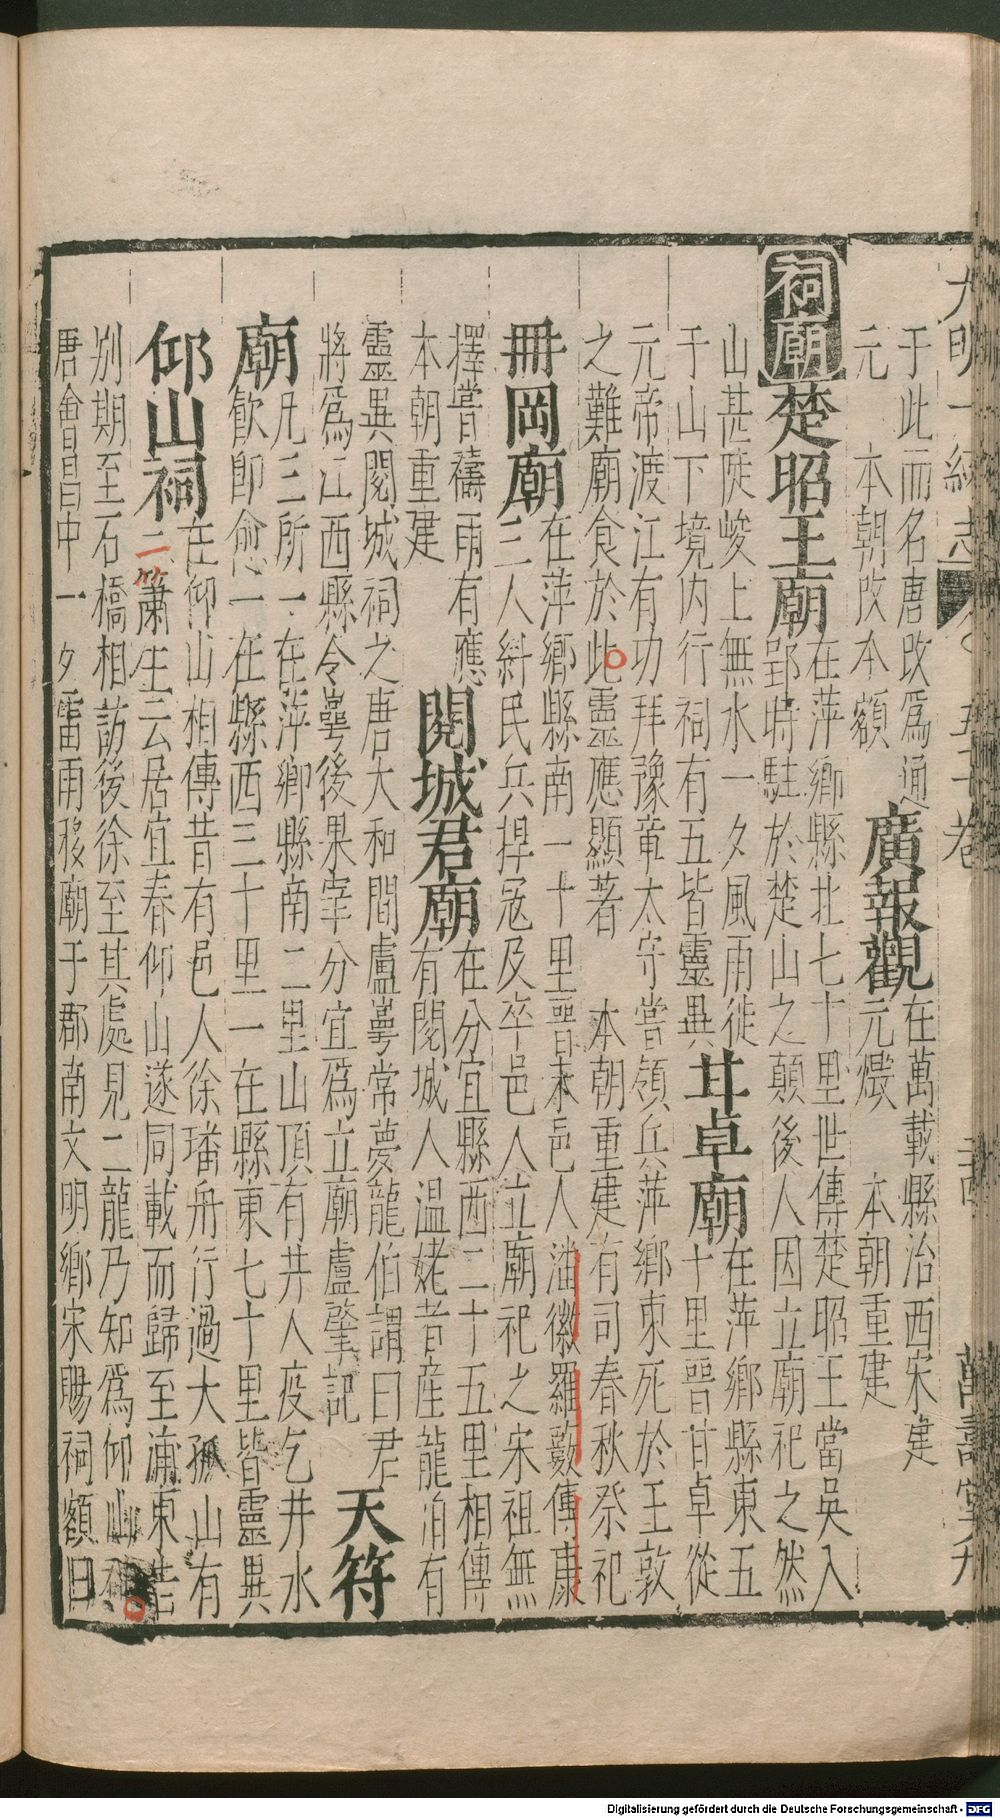 大明一統志 卷之五十七卷 萬壽堂刋
于此而名唐改爲通
元 本朝改本額
廣報觀
在萬載縣治西宋建
元燬 本朝重建
祠廟
楚昭王廟
在萍鄉縣北七十里世傳楚昭王當吳入
郢時駐於楚山之顛後人因立廟祀之然
山甚陡峻上無水一夕風雨徙
于山下境内行祠有五皆靈異
甘卓廟
在萍鄉縣東五
十里晉甘卓從
元帝渡江有功拜豫章太守嘗領兵萍鄉東死於王敦
之難廟食於此靈應顯著 本朝重建有司春秋祭祀
冊岡廟
在萍鄉縣南一十里晉末邑人潘徽羅藪傅康
三人糾民兵捍冦及卒邑人立廟祀之宋祖無
擇嘗禱雨有應
本朝重建
閱城君廟
在分宜縣西二十五里相傳
有閱城人温姥者産龍洎有
靈異閱城祠之唐大和間盧萼常夢龍伯謂曰君
將爲江西縣令萼後果宰分宜爲立廟盧肇記
天符
廟
凡三所一在萍鄉縣南二里山頂有井人疫乞井水
飮即愈一在縣西三十里一在縣東七十里皆靈異
仰山祠
在仰山相傳昔有邑人徐璠舟行過大孤山有
二蕭生云居宜春仰山遂同載而歸至浦東告
别期至石橋相訪後徐至其處見二龍乃知爲仰山神
唐會昌中一夕雷雨移廟于郡南文明鄉宋賜祠額曰
Digitalisierung gefördert durch die Deutsche Forschungsgemeinschaft - DFG